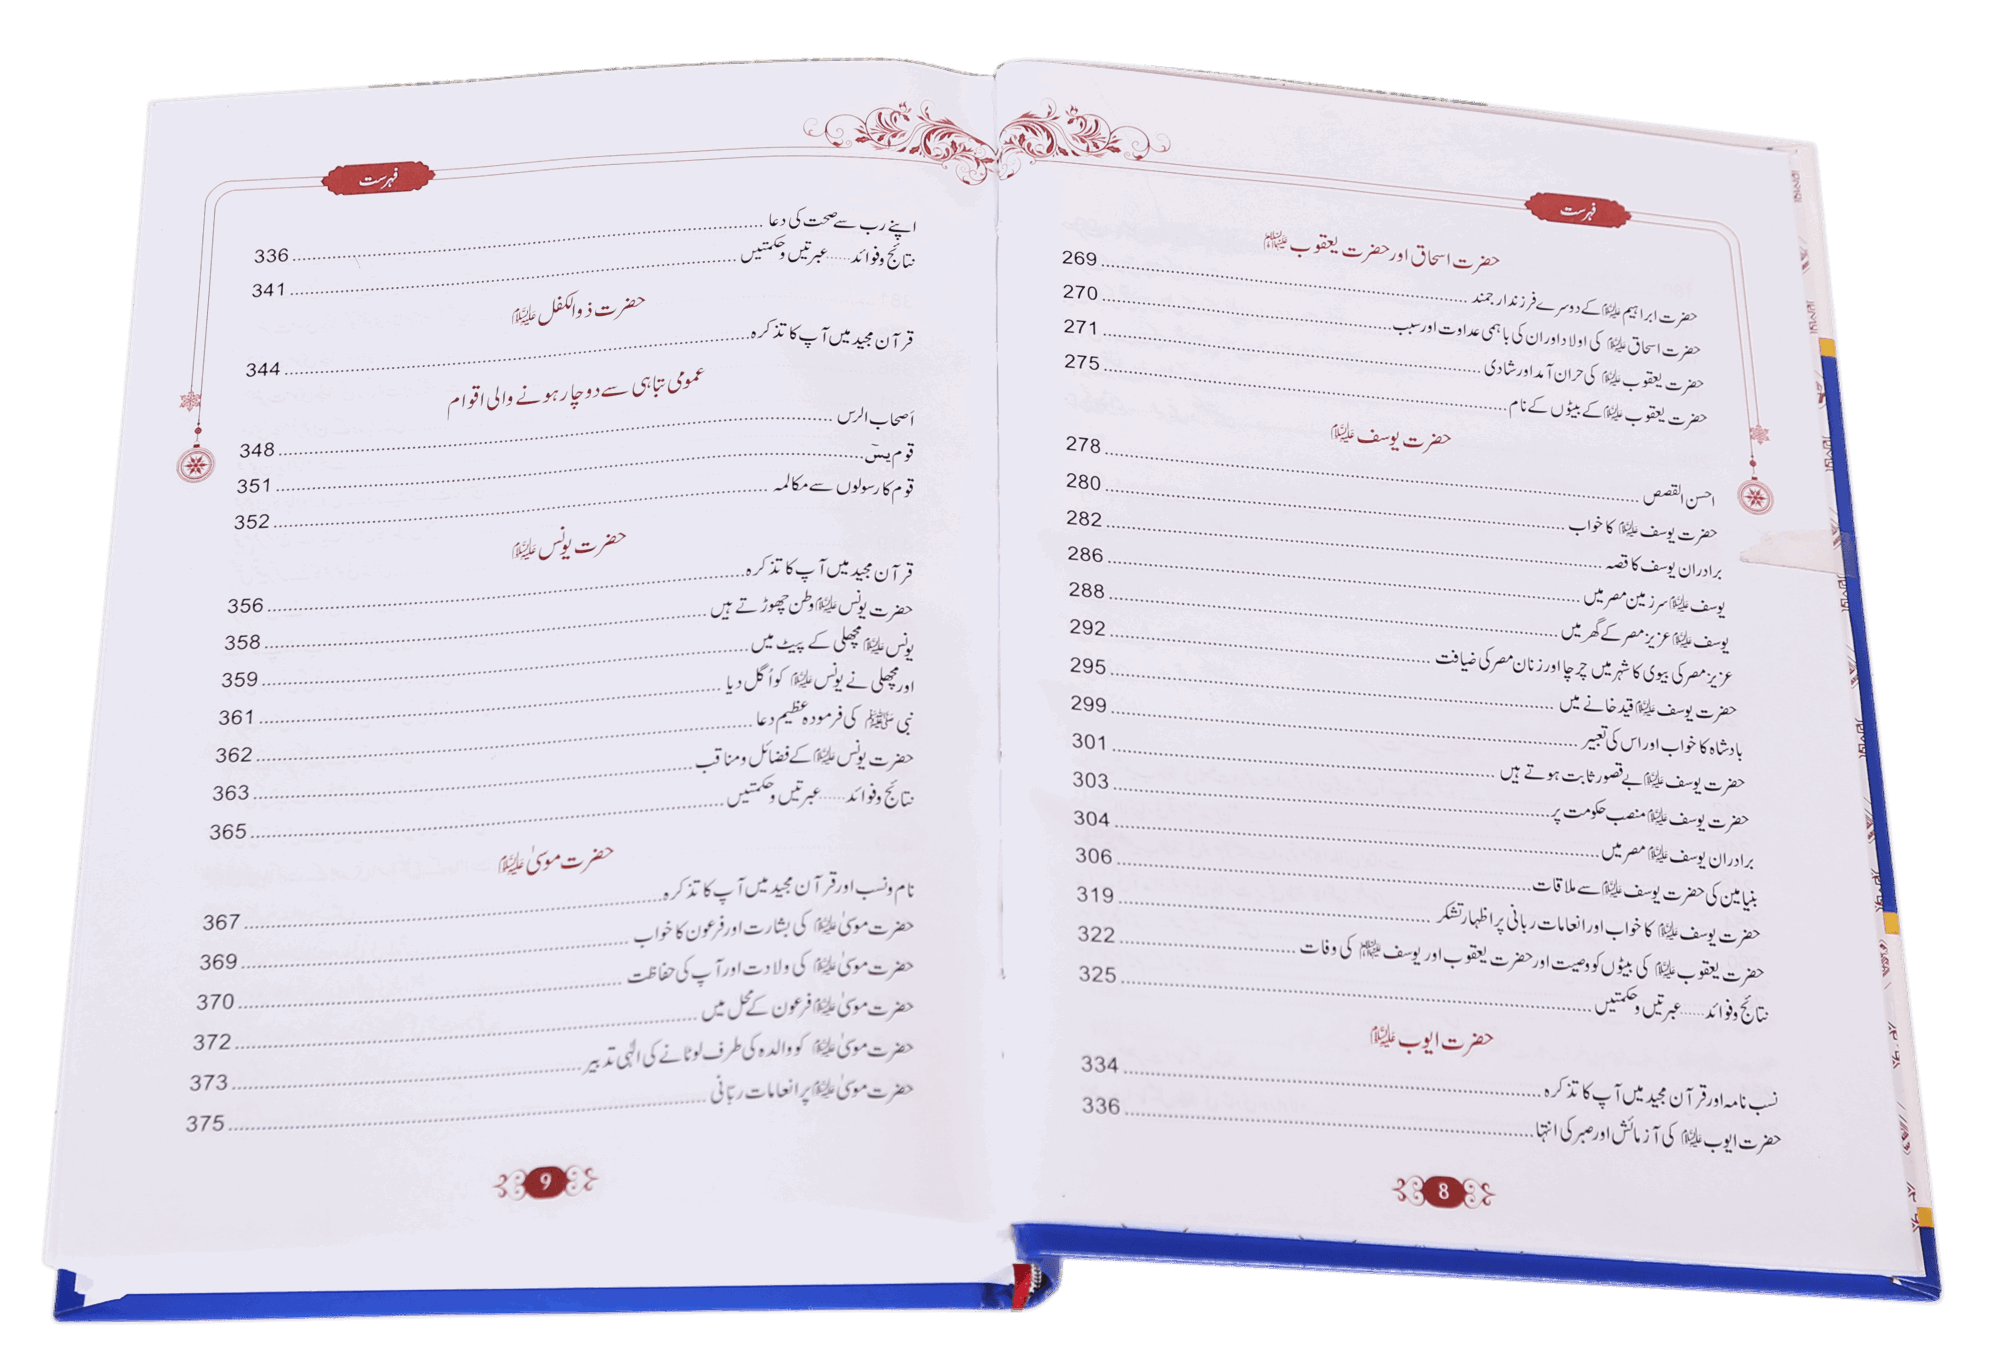 فہرست
حضرت اسحاق اور حضرت یعقوب علیہما السلام
حضرت ابراہیم علیہ السلام کے دوسرے فرزند ارجمند 269
حضرت اسحاق علیہ السلام کی اولاد اور ان کی باہمی عداوت اور سبب 270
حضرت یعقوب علیہ السلام کی حران آمد اور شادی 271
حضرت یعقوب علیہ السلام کے بیٹوں کے نام 275
حضرت یوسف علیہ السلام
احسن القصص 278
حضرت یوسف علیہ السلام کا خواب 280
برادران یوسف کا قصہ 282
یوسف علیہ السلام سرزمین مصر میں 286
یوسف علیہ السلام عزیز مصر کے گھر میں 288
عزیز مصر کی بیوی کا شہر میں چرچا اور زنان مصر کی ضیافت 292
حضرت یوسف علیہ السلام قید خانے میں 295
بادشاہ کا خواب اور اس کی تعبیر 299
حضرت یوسف علیہ السلام بے قصور ثابت ہوتے ہیں 301
حضرت یوسف علیہ السلام منصب حکومت پر 303
برادران یوسف علیہ السلام مصر میں 304
بنیامین کی حضرت یوسف علیہ السلام سے ملاقات 306
حضرت یوسف علیہ السلام کا خواب اور انعامات ربانی پر اظہار تشکر 319
حضرت یعقوب علیہ السلام کی بیٹوں کو وصیت اور حضرت یعقوب اور یوسف علیہما السلام کی وفات 322
نتائج و فوائد...... عبرتیں و حکمتیں 325
حضرت ایوب علیہ السلام
نسب نامہ اور قرآن مجید میں آپ کا تذکرہ 334
حضرت ایوب علیہ السلام کی آزمائش اور صبر کی انتہا 336
8
فہرست
اپنے رب سے صحت کی دعا 336
نتائج و فوائد...... عبرتیں و حکمتیں 341
حضرت ذوالکفل علیہ السلام
قرآن مجید میں آپ کا تذکرہ 344
عمومی تباہی سے دوچار ہونے والی اقوام
اَصحاب الرس 348
قوم یسٓ 351
قوم کا رسولوں سے مکالمہ 352
حضرت یونس علیہ السلام
قرآن مجید میں آپ کا تذکرہ 356
حضرت یونس علیہ السلام وطن چھوڑتے ہیں 358
یونس علیہ السلام مچھلی کے پیٹ میں 359
اور مچھلی نے یونس علیہ السلام کو اُگل دیا 361
نبی ﷺ کی فرمودہ عظیم دعا 362
حضرت یونس علیہ السلام کے فضائل و مناقب 363
نتائج و فوائد...... عبرتیں و حکمتیں 365
حضرت موسیٰ علیہ السلام
نام و نسب اور قرآن مجید میں آپ کا تذکرہ 367
حضرت موسیٰ علیہ السلام کی بشارت اور فرعون کا خواب 369
حضرت موسیٰ علیہ السلام کی ولادت اور آپ کی حفاظت 370
حضرت موسیٰ علیہ السلام فرعون کے محل میں 372
حضرت موسیٰ علیہ السلام کو والدہ کی طرف لوٹانے کی الٰہی تدبیر 373
حضرت موسیٰ علیہ السلام پر انعامات ربّانی 375
9